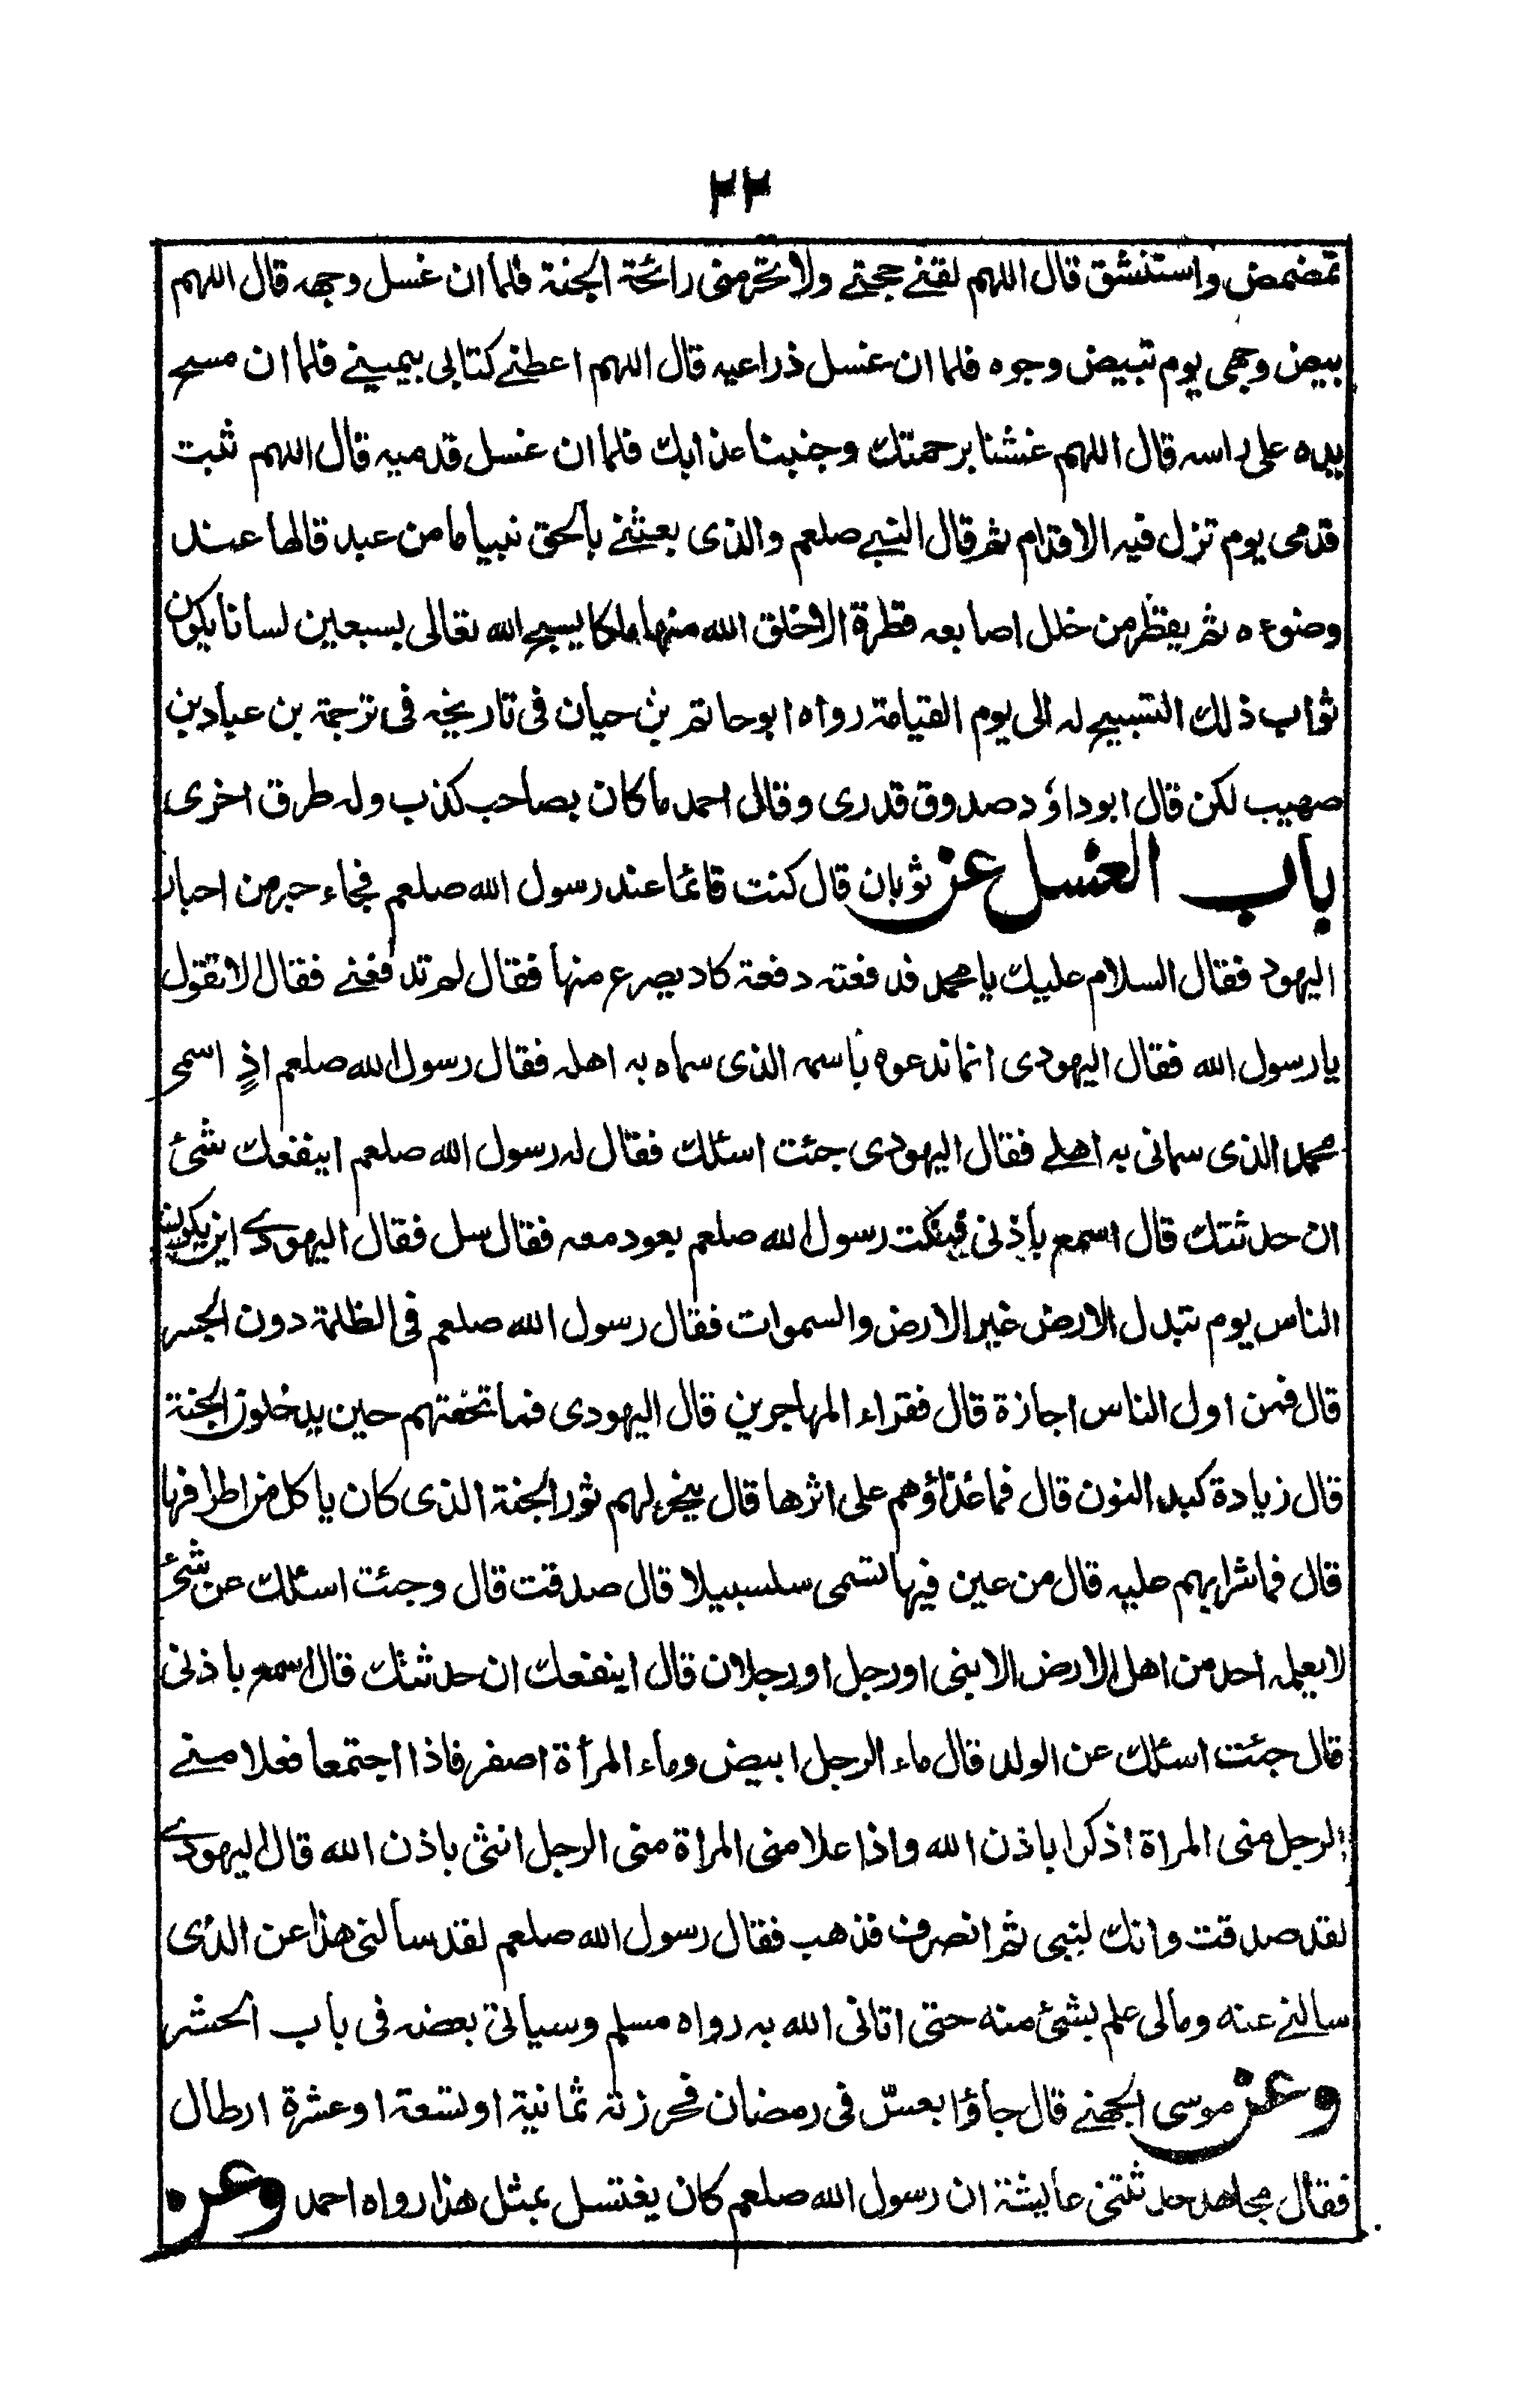 ٢٢
تمضمض واستنشق قال اللهم لقنے حجتے ولا تحرمنی رائحة الجنة فلما ان غسل وجهه قال اللهم
بيض وجهی يوم تبيض وجوه فلما ان غسل ذراعيه قال اللهم اعطنے كتابی بيمينے فلما ان مسح
بيده علی راسه قال اللهم غشنا برحمتك وجنبنا عذابك فلما ان غسل قدميه قال اللهم ثبت
قدمی يوم تزل فيه الاقدام ثم قال النبے صلعم والذی بعثنے بالحق نبيا ما من عبد قالها عند
وضوءه ثم يقطر من خلل اصابعه قطرة الا خلق الله منها ملكا يسبح الله تعالی بسبعين لسانا يكون
ثواب ذلك التسبيح له الی يوم القيامة رواه ابو حاتم بن حيان فی تاريخه فی ترجمة بن عباد بن
صهيب لكن قال ابو داؤد صدوق قدری وقال احمد ما كان بصاحب كذب وله طرق اخری
باب الغسل عن ثوبان قال كنت قائما عند رسول الله صلعم فجاء حبر من احبار
اليهود فقال السلام عليك يا محمد فدفعته دفعة كاد يصرع منها فقال لم تدفعنے فقال الا تقول
يا رسول الله فقال اليهودی انما ندعوه باسمه الذی سماه به اهله فقال رسول الله صلعم اذٍ اسمی
محمد الذی سمانی به اهلے فقال اليهودی جئت اسئلك فقال له رسول الله صلعم اينفعك شئ
ان حدثتك قال اسمع بأذنی فنكت رسول الله صلعم بعود معه فقال سل فقال اليهودے اين يكون
الناس يوم تبدل الارض غير الارض والسموات فقال رسول الله صلعم فی الظلمة دون الجسر
قال فمن اول الناس اجازة قال فقراء المهاجرين قال اليهودی فما تحفتهم حين يدخلون الجنة
قال زيادة كبد النون قال فما غذاؤهم علی اثرها قال ينحر لهم ثور الجنة الذی كان ياكل من اطرافها
قال فما شرابهم عليه قال من عين فيها تسمی سلسبيلا قال صدقت قال وجئت اسئلك عن شئ
لا يعلمه احد من اهل الارض الا بنی او رجل او رجلان قال اينفعك ان حدثتك قال اسمع باذنی
قال جئت اسئلك عن الولد قال ماء الرجل ابيض وماء المرأة اصفر فاذا اجتمعا فعلا منے
الرجل منی المراة اذكرا باذن الله واذا علا منی المراة منی الرجل انثی باذن الله قال اليهودے
لقد صدقت وانك لنبی ثم انصرف فذهب فقال رسول الله صلعم لقد سألنی هذا عن الذی
سالنے عنه ومالی علم بشئ منه حتی اتانی الله به رواه مسلم وسياتی بعضه فی باب الحشر
وعن موسی الجهنے قال جاؤا بعسّ فی رمضان فحرزته ثمانية او تسعة او عشرة ارطال
فقال مجاهد حدثتنی عايشة ان رسول الله صلعم كان يغتسل بمثل هذا رواه احمد وعن